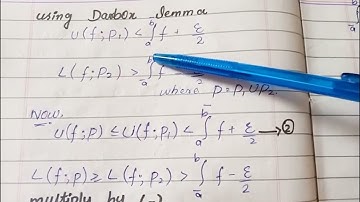 using Darbox lemma
U(f;p₁) < ∫ₐᵇ f + ε/2
L(f;p₂) > ∫ₐᵇ f ε/2
where P = P₁UP₂
Now,
U(f;p) ≤ U(f;P₁) < ∫ₐᵇ f + ε/2 → ②
L(f;p) ≥ L(f;P₂) > ∫ₐᵇ f - ε/2
multiply by (-)